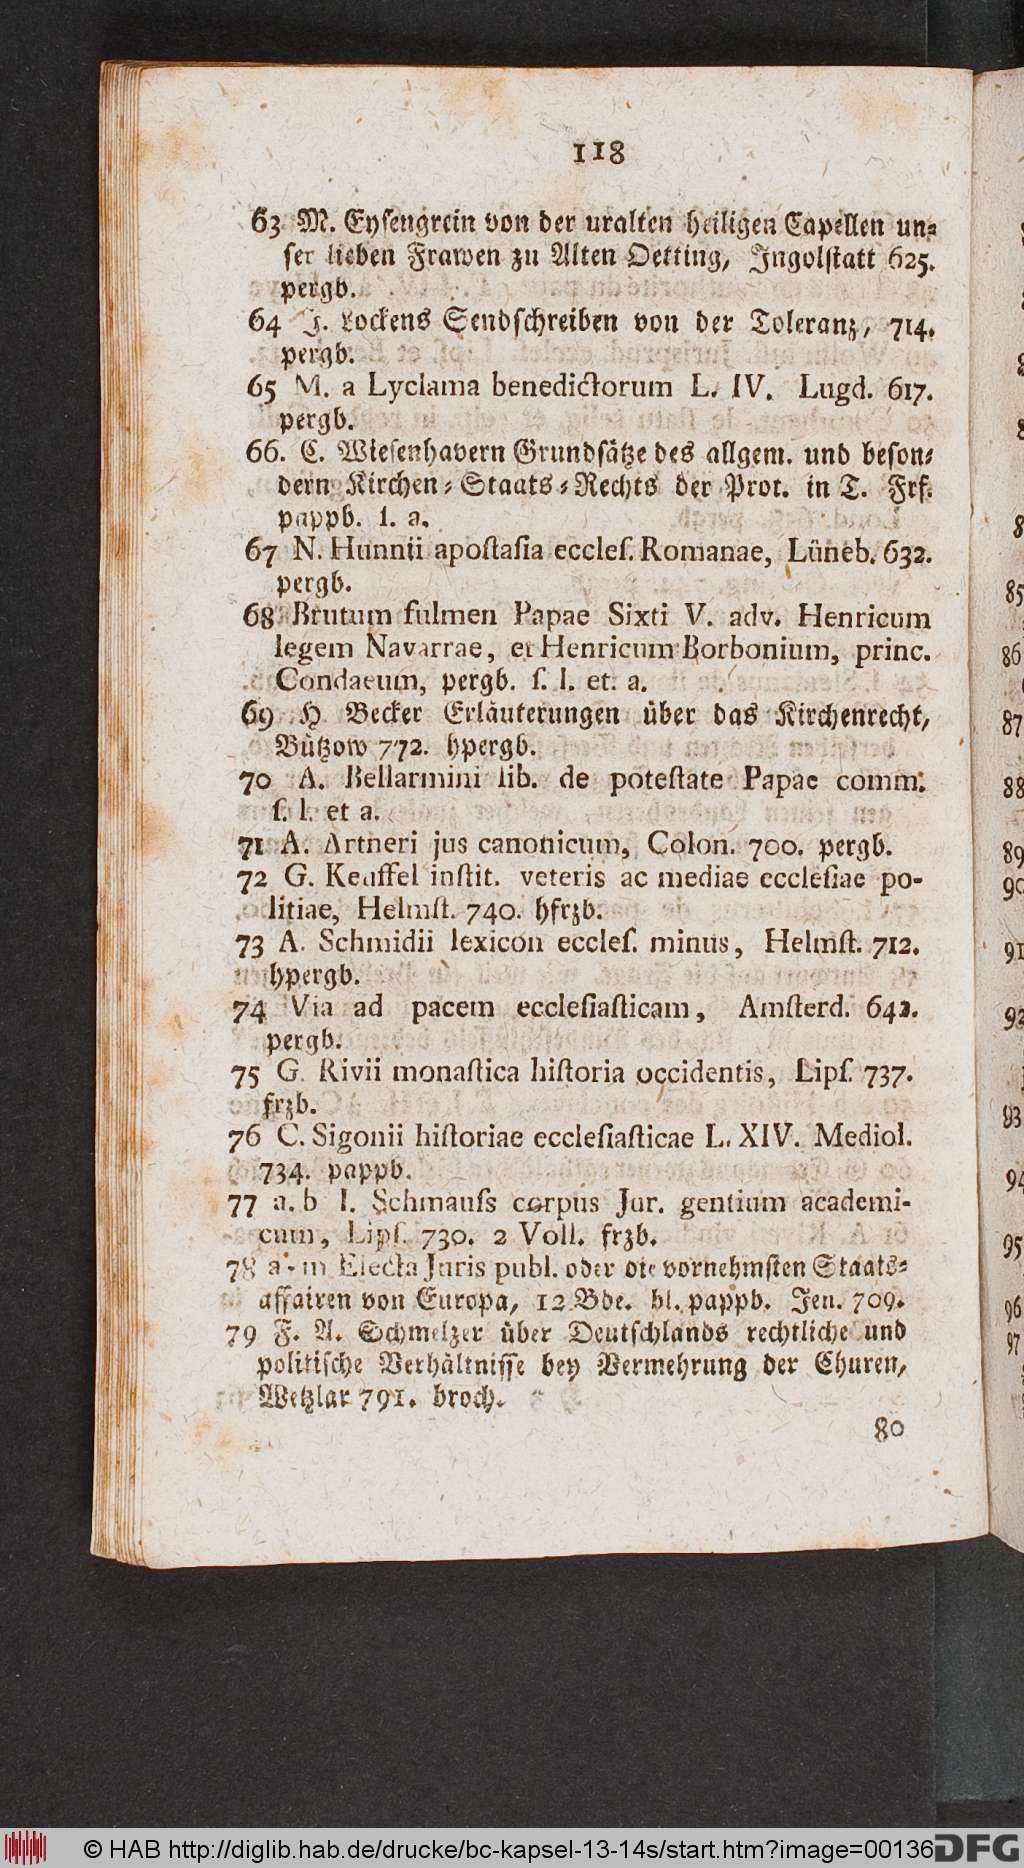 118
63 M. Eysengrein von der uralten heiligen Capellen un⸗
ser lieben Frawen zu Alten Oetting, Ingolstatt 625.
pergb.
64 J. Lockens Sendschreiben von der Toleranz, 714.
pergb.
65 M. a Lyclama benedictorum L. IV. Lugd. 617.
pergb.
66. C. Wiesenhavern Grundsätze des allgem. und beson⸗
dern Kirchen⸗Staats⸗Rechts der Prot. in T. Frf.
pappb. l. a.
67 N. Hunnii apostasia eccleſ. Romanae, Lüneb. 632.
pergb.
68 Brutum fulmen Papae Sixti V. adv. Henricum
legem Navarrae, et Henricum Borbonium, princ.
Condaeum, pergb. ſ. l. et. a.
69 H Becker Erläuterungen über das Kirchenrecht,
Bützow 772. hpergb.
70 A. Bellarmini lib. de poteſtate Papae comm.
ſ. l. et a.
71 A. Artneri jus canonicum, Colon. 700. pergb.
72 G. Keuffel inſtit. veteris ac mediae eccleſiae po-
litiae, Helmſt. 740. hfrzb.
73 A. Schmidii lexicon eccleſ. minus, Helmſt. 712.
hpergb.
74 Via ad pacem eccleſiaſticam, Amſterd. 642.
pergb.
75 G. Rivii monaſtica hiſtoria occidentis, Lipſ. 737.
frzb.
76 C. Sigonii hiſtoriae eccleſiaſticae L. XIV. Mediol.
734. pappb.
77 a. b I. Schmauſs corpus Jur. gentium academi-
cum, Lipſ. 730. 2 Voll. frzb.
78 a - m Electa Juris publ. oder die vornehmsten Staats⸗
affairen von Europa, 12 Bde. bl. pappb. Jen. 709.
79 F. A. Schmelzer über Deutschlands rechtliche und
politische Verhältnisse bey Vermehrung der Churen,
Wetzlar 791. broch.
80
85
86
87
88
89
90
91
92
93
94
95
96
97
© HAB http://diglib.hab.de/drucke/bc-kapsel-13-14s/start.htm?image=00136
DFG